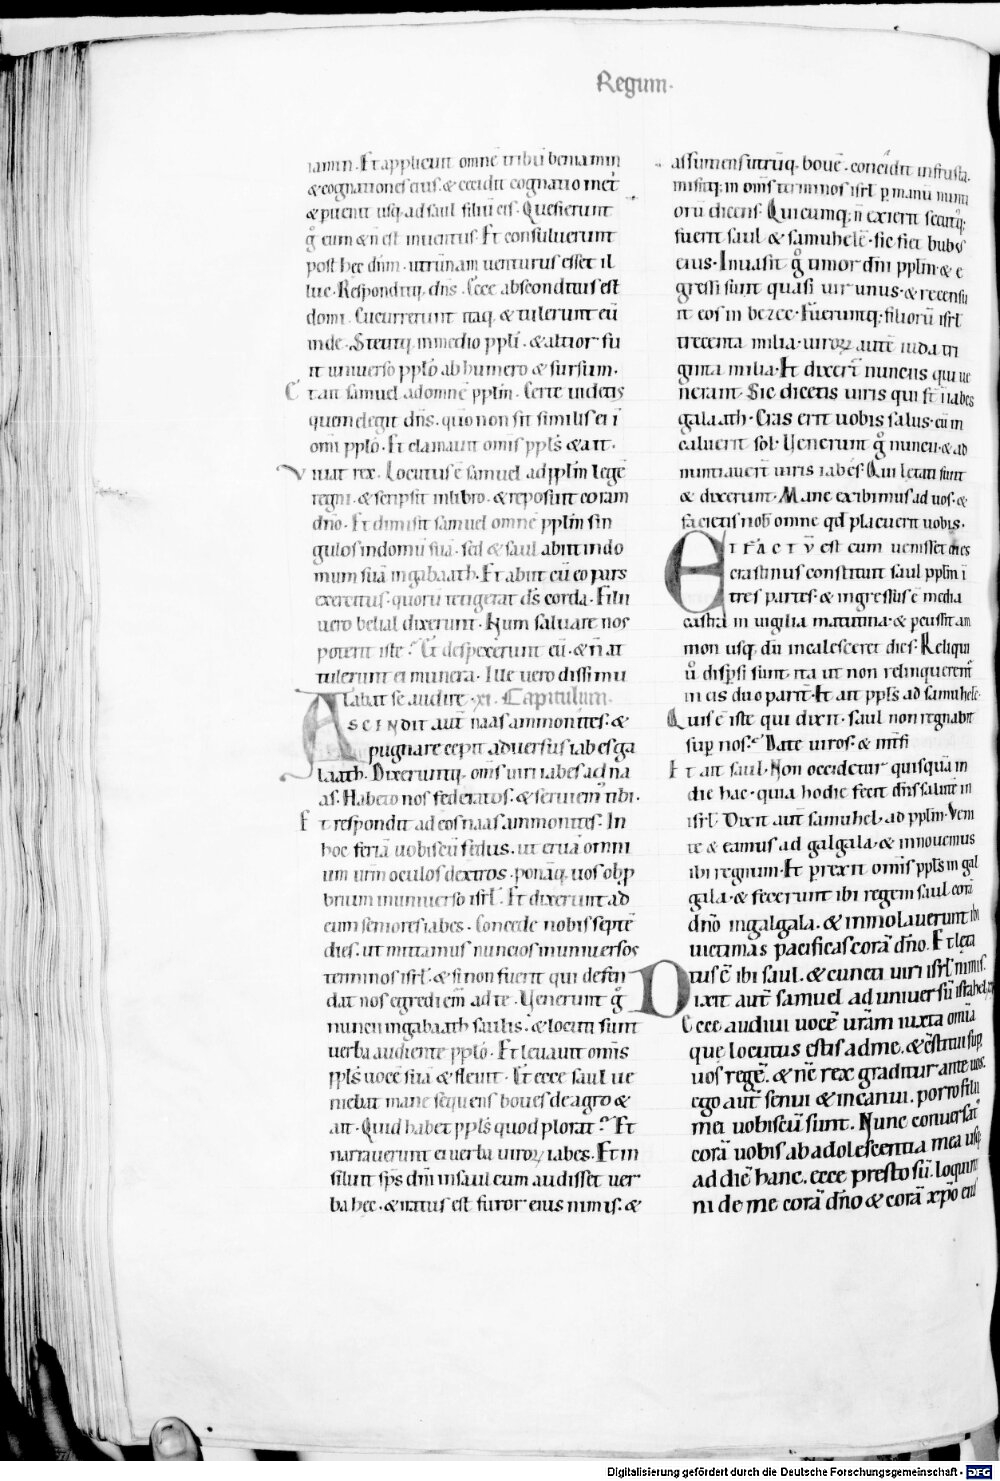 Regum.
iamin. Et applicuit omnē tribū beniamin
& cognationes eius. & cecidit cognatio met
& puenit usq. ad saul filiū cis. Quesierunt
g̊ eum & ñ est inuentus. Et consuluerunt
post hec dñm. utrunam uenturus esset il
luc. Responditq. dñs. Ecce absconditus est
domi. Cucurrerunt itaq. & tulerunt eū
inde. Stetitq. in medio ppli. & altior fu
it uniuerso pplo ab humero & sursum.
Et ait samuel ad omnē pplm. Certe uidetis
quem elegit dñs. qm̄ non sit similis ei ī
omi pplo. Et clamauit omis ppls & ait.
Viuat rex. Locutus ē samuel ad pplm legē
regni. & scripsit in libro. & reposuit coram
dño. Et dimisit samuel omnē pplm sin
gulos in domū suā. sed & saul abiit in do
mum suā in gabaath. Et abiit cū eo pars
exercitus. quorū tetigerat ds corda. Filii
uero belial dixerunt. Num saluare nos
poterit iste? Et despexerunt eū. & ñ at
tulerunt ei munera. Ille uero dissimu
labat se audire. xi. Capitulum.
ASCENDIT aut naas ammonites. &
pugnare cepit aduersus iabes ga
laath. Dixeruntq. oms uiri iabes ad na
as. Habeto nos federatos. & seruiem tibi.
Et respondit ad eos naas ammonites. In
hoc feriā uobiscū fedus. ut eruā omni
um urm oculos dextros. ponāq. uos obp
brium in uniuerso isrl. Et dixerunt ad
eum seniores iabes. Concede nobis septē
dies. ut mittamus nuncios in uniuersos
terminos isrl. & si non fuerit qui defen
dat nos egrediem ad te. Venerunt g̊
nuncii in gabaath saulis. & locuti sunt
uerba audiente pplo. Et leuauit omis
ppls uocē suā & fleuit. Et ecce saul ue
niebat mane sequens boues de agro &
ait. Quid habet ppls quod plorat? Et
narrauerunt ei uerba uiroꝝ iabes. Et in
siluit sps dni in saul cum audisset uer
ba hec. & iratus est furor eius nimis. &
assumens utrūq. bouē. concidit in frusta.
misitq; in oms terminos isrl p manū nunti
orū dicens. Quicumq; ñ exierit secutq;
fuerit saul & samuhelē. sic fiet bubꝰ
eius. Inuasit g̊ timor dni pplm & e
gressi sunt quasi uir unus. & recensu
it eos in bezec. Fueruntq; filiorū isrl
trecenta milia. uiroꝝ autē iuda tri
ginta milia. Et dixert nunciis qui ue
nerant. Sic dicetis uiris qui st ī iabes
galaath. Cras erit uobis salus. cū in
caluerit sol. Venerunt g̊ nuncii. & ad
nuntiauert uiris iabes. Qui letati sunt
& dixerunt. Mane exibimus ad uos. &
facietis nob omne qd placuerit uobis.
ET FACTV est cum uenisset dies
crastinus constituit saul pplm ī
tres partes. & ingressus ē media
castra in uigilia matutina. & pcussit am
mon usq. dū incalesceret dies. Reliqui
ū dispsi sunt. ita ut non relinquerent
in eis duo parit. Et ait ppls ad samuhelē.
Quis ē iste qui dixit. saul non regnabit
sup nos? Date uiros. & intfi
Et ait saul. Non occidetur quisquā in
die hac. quia hodie fecit dns salutē in
isrl. Dixit aut samuhel. ad pplm. Veni
te & eamus ad galgala. & innouemus
ibi regnum. Et prexit omis ppls in gal
gala. & fecerunt ibi regem saul corā
dño in galgala. & inmolauerunt ibi
uictimas pacificas corā dño. Et leta
tus ē ibi saul. & cuncti uiri isrl nimis.
Dixit aut samuel ad uniuersū israhel.
Ecce audiui uocē urām iuxta omia
que locutus estis ad me. & cstitui sup
uos regē. & nc̄ rex graditur ante uos.
ego aut senui & incanui. porro filii
mei uobiscū sunt. Nunc conuersat
corā uobis ab adolescentia mea usq
ad diē hanc. ecce presto sū. loquimi
ni de me corā dño & corā xpō eius
Digitalisierung gefördert durch die Deutsche Forschungsgemeinschaft - DFG